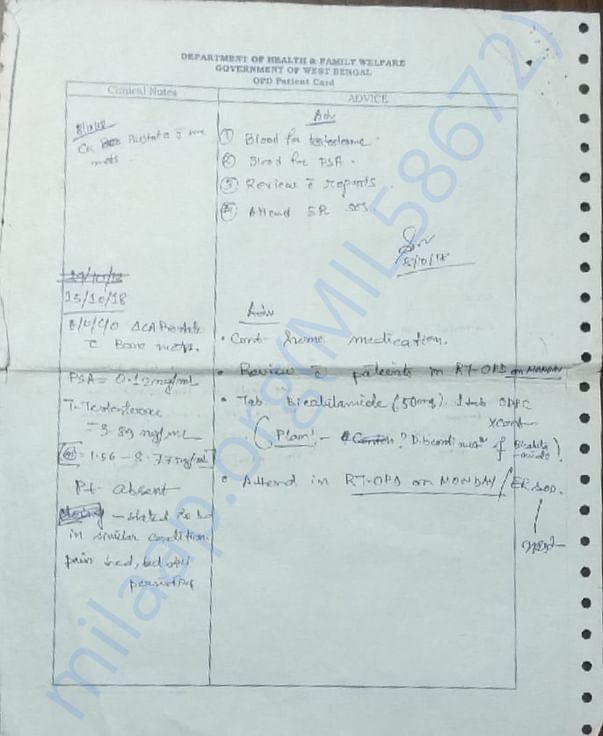 DEPARTMENT OF HEALTH & FAMILY WELFARE
GOVERNMENT OF WEST BENGAL
OPD Patient Card
Clinical Notes
ADVICE
8/10/18
Ca Prostate c
mets
Adv
① Blood for testosterone.
② Blood for PSA.
③ Review c reports.
④ Attend ER SOS.
8/10/18
15/10/18
Ca Prostate
c Bone mets.
PSA = 0.12 ng/ml
T. Testosterone
= 3.89 ng/ml
= 1.56 - 8.77 ng/ml
Pt absent
- stated to b
in similar condition
pain , but still
persisting
Adv
• Cont- home medication.
• Review c patients in RT-OPD on MONDAY
• Tab Bicalutamide (50mg) 1 tab ODPC
x cont-
(Plan! - ? Discontinue of Bicaluta-mide).
• Attend in RT-OPD on MONDAY / ER SOD.
milaap.org(MIL586672)